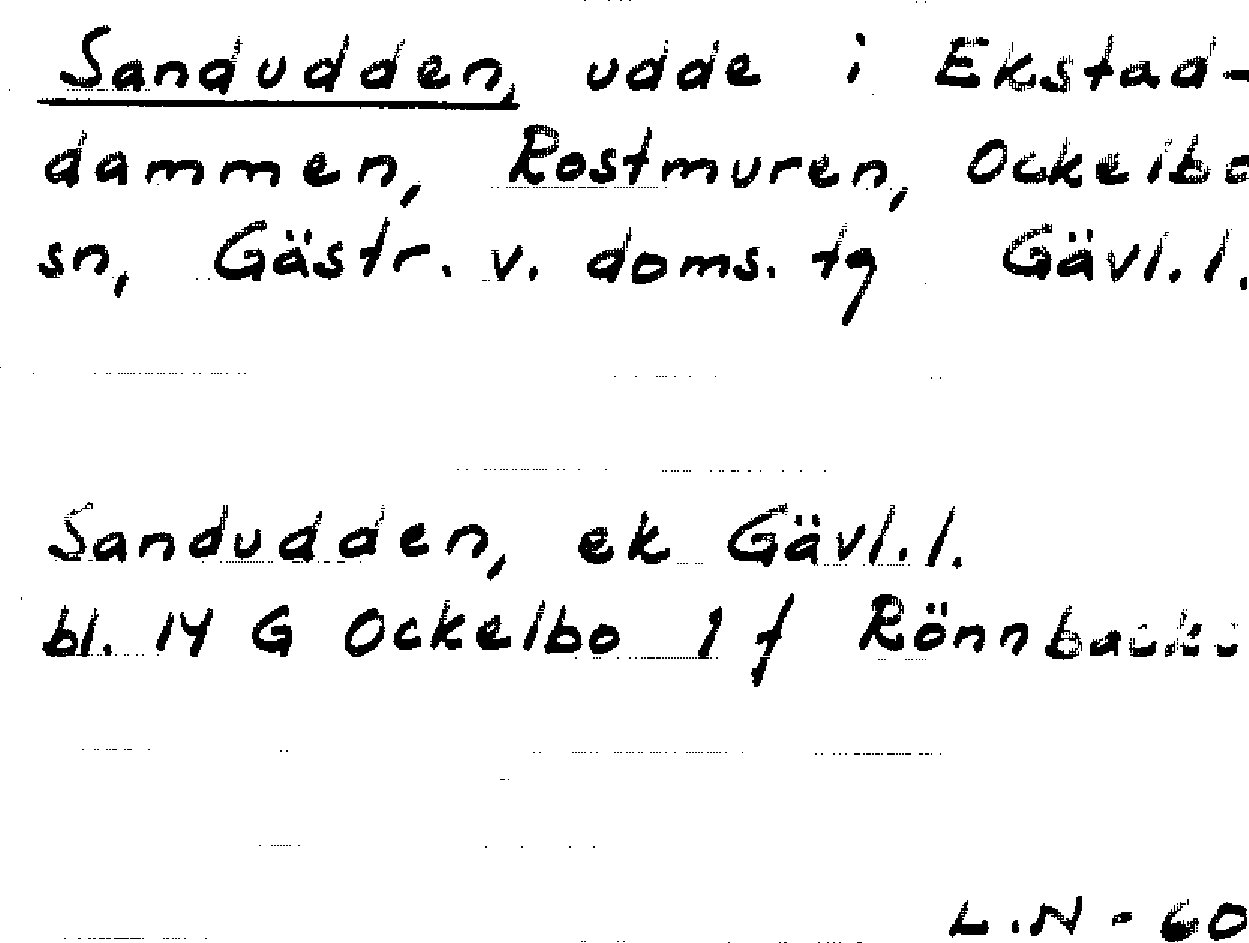 Sandudden, udde i Ekstad-
dammen, Rostmuren, Ockelbo
sn, Gästr. v. doms. tg Gävl. l.
Sandudden, ek Gävl. l.
bl. 14 G Ockelbo 1 f
L.N - 60